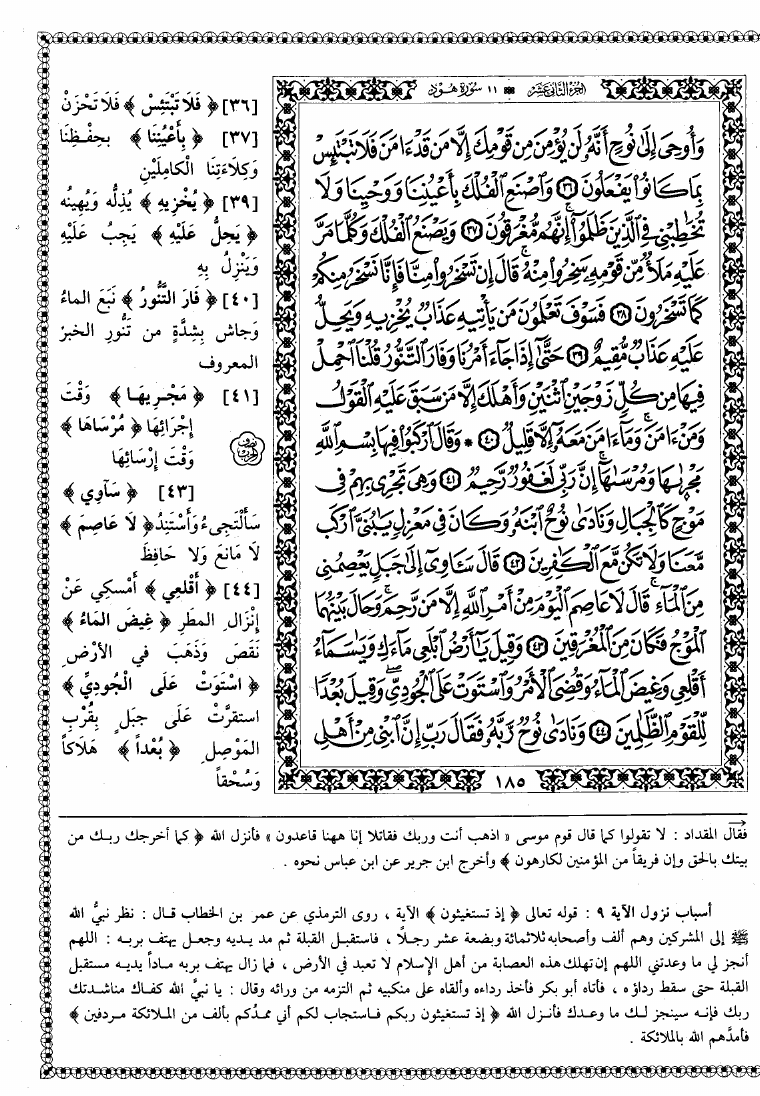 الجزء الثاني عشر ١١ سورة هود
وَأُوحِىَ إِلَىٰ نُوحٍ أَنَّهُۥ لَن يُؤْمِنَ مِن قَوْمِكَ إِلَّا مَن قَدْ ءَامَنَ فَلَا تَبْتَئِسْ
بِمَا كَانُوا۟ يَفْعَلُونَ ٣٦ وَٱصْنَعِ ٱلْفُلْكَ بِأَعْيُنِنَا وَوَحْيِنَا وَلَا
تُخَٰطِبْنِى فِى ٱلَّذِينَ ظَلَمُوٓا۟ إِنَّهُم مُّغْرَقُونَ ٣٧ وَيَصْنَعُ ٱلْفُلْكَ وَكُلَّمَا مَرَّ
عَلَيْهِ مَلَأٌ مِّن قَوْمِهِۦ سَخِرُوا۟ مِنْهُ قَالَ إِن تَسْخَرُوا۟ مِنَّا فَإِنَّا نَسْخَرُ مِنكُمْ
كَمَا تَسْخَرُونَ ٣٨ فَسَوْفَ تَعْلَمُونَ مَن يَأْتِيهِ عَذَابٌ يُخْزِيهِ وَيَحِلُّ
عَلَيْهِ عَذَابٌ مُّقِيمٌ ٣٩ حَتَّىٰٓ إِذَا جَآءَ أَمْرُنَا وَفَارَ ٱلتَّنُّورُ قُلْنَا ٱحْمِلْ
فِيهَا مِن كُلٍّ زَوْجَيْنِ ٱثْنَيْنِ وَأَهْلَكَ إِلَّا مَن سَبَقَ عَلَيْهِ ٱلْقَوْلُ
وَمَنْ ءَامَنَ وَمَآ ءَامَنَ مَعَهُۥٓ إِلَّا قَلِيلٌ ٤٠ * وَقَالَ ٱرْكَبُوا۟ فِيهَا بِسْمِ ٱللَّهِ
مَجْر۪ىٰهَا وَمُرْسَىٰهَآ إِنَّ رَبِّى لَغَفُورٌ رَّحِيمٌ ٤١ وَهِىَ تَجْرِى بِهِمْ فِى
مَوْجٍ كَٱلْجِبَالِ وَنَادَىٰ نُوحٌ ٱبْنَهُۥ وَكَانَ فِى مَعْزِلٍ يَٰبُنَىَّ ٱرْكَب
مَّعَنَا وَلَا تَكُن مَّعَ ٱلْكَٰفِرِينَ ٤٢ قَالَ سَـَٔاوِىٓ إِلَىٰ جَبَلٍ يَعْصِمُنِى
مِنَ ٱلْمَآءِ قَالَ لَا عَاصِمَ ٱلْيَوْمَ مِنْ أَمْرِ ٱللَّهِ إِلَّا مَن رَّحِمَ وَحَالَ بَيْنَهُمَا
ٱلْمَوْجُ فَكَانَ مِنَ ٱلْمُغْرَقِينَ ٤٣ وَقِيلَ يَٰٓأَرْضُ ٱبْلَعِى مَآءَكِ وَيَٰسَمَآءُ
أَقْلِعِى وَغِيضَ ٱلْمَآءُ وَقُضِىَ ٱلْأَمْرُ وَٱسْتَوَتْ عَلَى ٱلْجُودِىِّ وَقِيلَ بُعْدًا
لِّلْقَوْمِ ٱلظَّٰلِمِينَ ٤٤ وَنَادَىٰ نُوحٌ رَّبَّهُۥ فَقَالَ رَبِّ إِنَّ ٱبْنِى مِنْ أَهْلِى
١٨٥
[٣٦] ﴿ فَلَا تَبْتَئِسْ ﴾ فَلَا تَحْزَنْ
[٣٧] ﴿ بِأَعْيُنِنَا ﴾ بِحِفْظِنَا
وَكِلَاءَتِنَا الْكَامِلَيْنِ
[٣٩] ﴿ يُخْزِيهِ ﴾ يُذِلُّه وَيُهِينُه
﴿ يَحِلُّ عَلَيْهِ ﴾ يَجِبُ عَلَيْهِ
وَيَنْزِلُ بِهِ
[٤٠] ﴿ فَارَ التَّنُّورُ ﴾ نَبَعَ الماءُ
وَجاش بِشِدَّةٍ من تَنُّورِ الخبز
المعروف
[٤١] ﴿ مَجْرِيهَا ﴾ وَقْتَ
إِجْرَائِهَا ﴿ مُرْسَاهَا ﴾
وَقْتَ إِرْسَائِهَا
[٤٣] ﴿ سَآوِي ﴾
سَأَلْتَجِىءُ وَأَسْتَنِدُ ﴿ لَا عَاصِمَ ﴾
لَا مَانِعَ وَلَا حَافِظَ
[٤٤] ﴿ أَقْلِعِي ﴾ أَمْسِكِي عَنْ
إِنْزَالِ المطَرِ ﴿ غِيضَ المَاءُ ﴾
نَقَصَ وَذَهَبَ في الأرْضِ
﴿ اسْتَوَتْ عَلَى الْجُودِيِّ ﴾
استقرَّتْ عَلَى جبَلٍ بِقُرْبِ
المَوْصِلِ ﴿ بُعْداً ﴾ هَلَاكاً
وَسُحْقاً
فقال المقداد : لا تقولوا كما قال قوم موسى « اذهب أنت وربك فقاتلا إنا ههنا قاعدون » فأنزل الله ﴿ كما أخرجك ربك من
بيتك بالحق وإن فريقاً من المؤمنين لكارهون ﴾ وأخرج ابن جرير عن ابن عباس نحوه .
أسباب نزول الآية ٩ : قوله تعالى ﴿ إذ تستغيثون ﴾ الآية ، روى الترمذي عن عمر بن الخطاب قال : نظر نبيُّ الله
ﷺ إلى المشركين وهم ألف وأصحابه ثلاثمائة وبضعة عشر رجلاً ، فاستقبل القبلة ثم مد يديه وجعل يهتف بربه : اللهم
أنجز لي ما وعدتني اللهم إن تهلك هذه العصابة من أهل الإسلام لا تعبد في الأرض ، فما زال يهتف بربه ماداً يديه مستقبل
القبلة حتى سقط رداؤه ، فأتاه أبو بكر فأخذ رداءه وألقاه على منكبيه ثم التزمه من ورائه وقال : يا نبيَّ الله كفاك مناشدتك
ربك فإنه سينجز لك ما وعدك فأنزل الله ﴿ إذ تستغيثون ربكم فاستجاب لكم أني ممدُّكم بألف من الملائكة مردفين ﴾
فأمدَّهم الله بالملائكة .